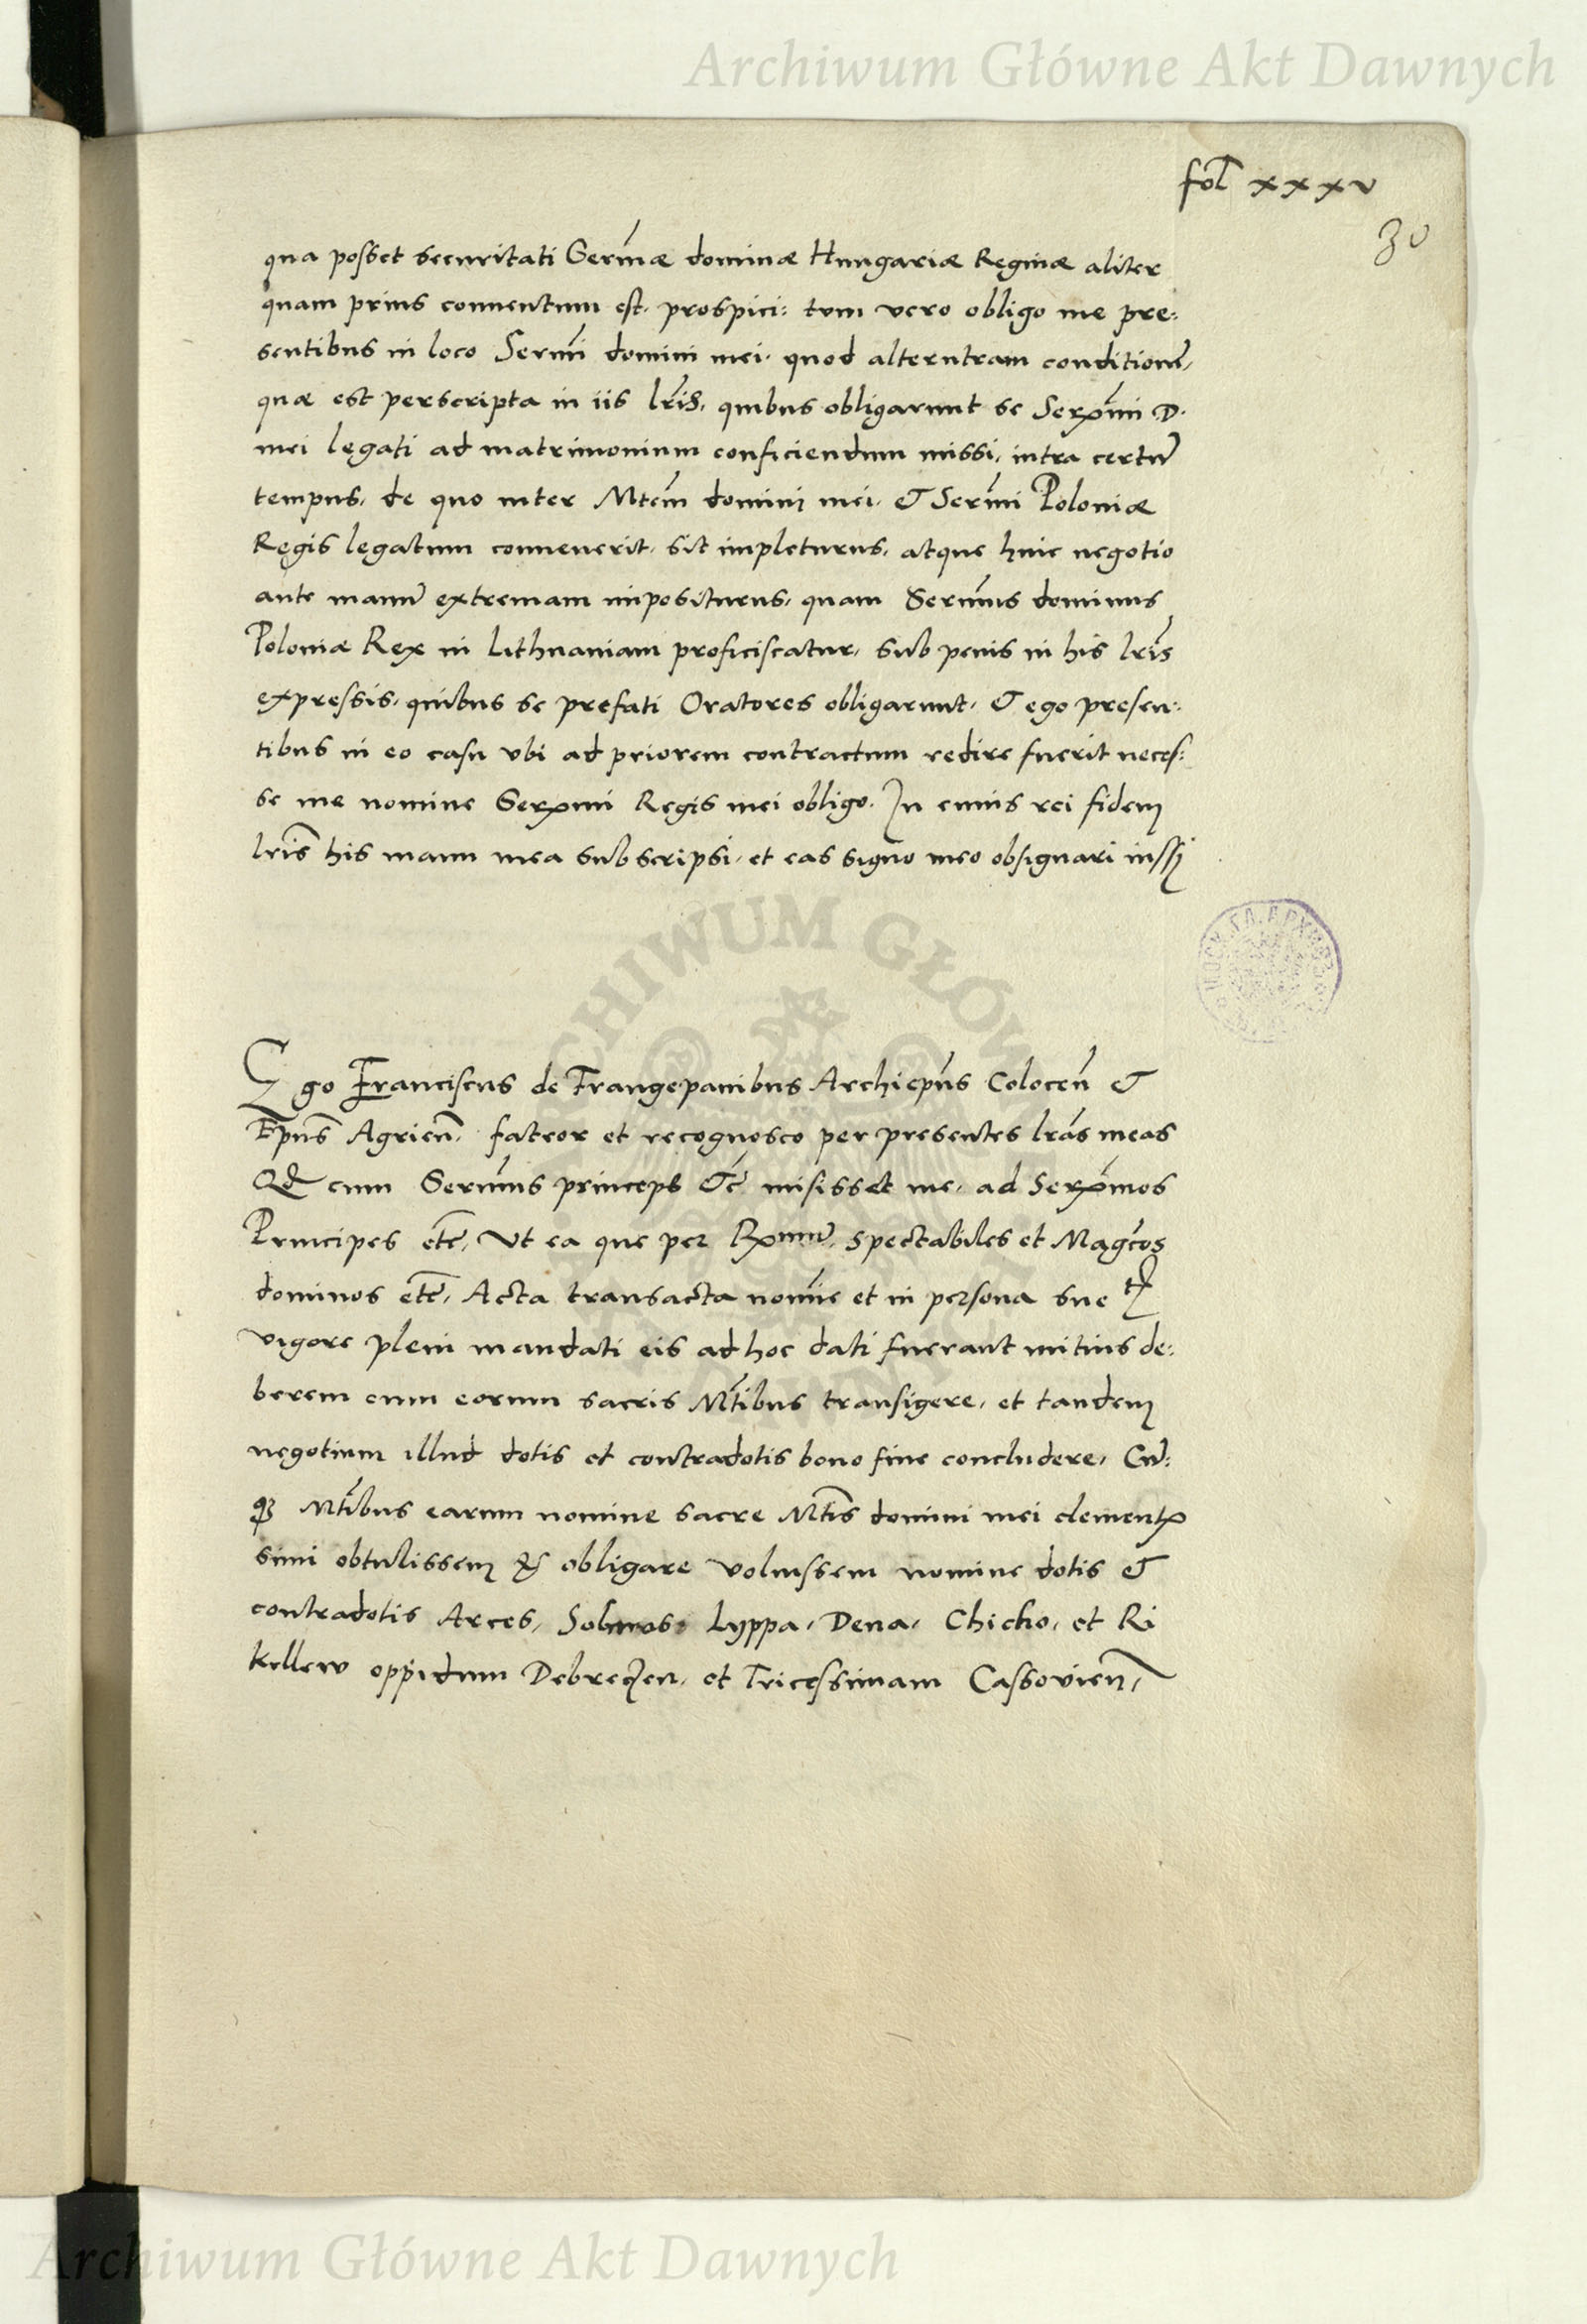 Archiwum Główne Akt Dawnych
fol xxxv
30
qua posset securitati Sermæ dominæ Hungariæ Reginæ aliter
quam prius conuentum est. prospici: tum vero obligo me pre:
sentibus in loco Sermi domini mei. quod alterutram conditionē,
quæ est perscripta in iis lr̄is, quibus obligarunt se Serxmi D.
mei legati ad matrimonium conficiendum missi, intra certū
tempus, de quo inter Mtem domini mei. & Sermi Poloniæ
Regis legatum conuenerit, sit impleturus, atque huic negotio
ante manū extremam impositurus, quam Sermus dominus
Poloniæ Rex in Lithuaniam proficiscatur, sub penis in his lr̄is
expressis, quibus se prefati Oratores obligarunt, & ego presen:
tibus in eo casu vbi ad priorem contractum redire fuerit neces:
se me nomine Serxmi Regis mei obligo. In cuius rei fidem
lr̄is his manu mea subscripsi, et eas signo meo obsignari iussj
Ego Franciscus de Frangepanibus Archiepūs Colocen̄ &
Epūs Agrien̄. fateor et recognosco per presentes lrās meas
Qd cum Sermus princeps &c̄ misisset me, ad Serxmos
Principes etc̄, Vt ea que per Rxmū, spectabiles et Magcos
dominos etc̄, Acta transacta nomīe et in persona sue
vigore pleni mandati eis ad hoc dati fuerant mitius de:
berem cum eorum sacris Mtibus transigere, et tandem
negotium illud dotis et contradotis bono fine concludere, Cū:
qꝫ Mtibus earum nomine sacre Mtis domini mei clementx
simi obtulissem & obligare voluissem nomine dotis &
contradotis Arces, Solmos, Lyppa, Dena, Chicko, et Ri
kellew oppidum Debreczen, et Tricessimam Cassovien̄,
ARCHIWUM GŁÓWNE AKT DAWNYCH
Archiwum Główne Akt Dawnych